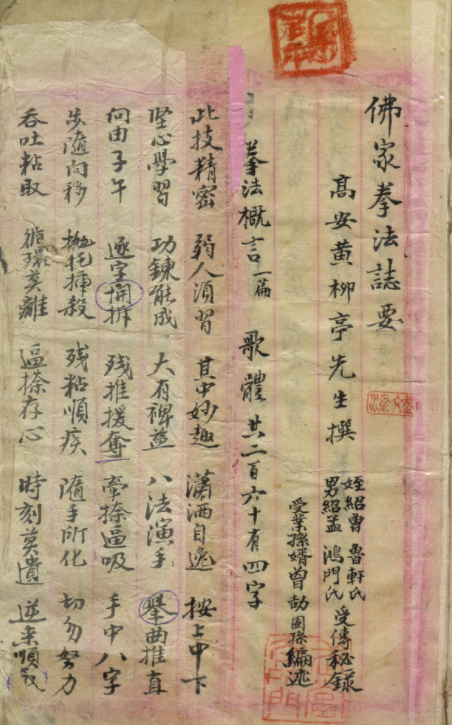 佛家拳法誌要
高安黃柳亭先生撰
姪紹曾 魯軒氏
男紹孟 鴻門氏
受傳秘录
受業孫婿曾劼園孫編述
拳法概言一篇 歌體 共二百六十有四字
此技精密 弱人須習 其中妙趣 瀟洒自逸 按上中下
坚心學習 功鍊能成 大有裨益 八法演手 舉両推直
向由子午 逐字開拆 残推援奪 牽捺逼吸 手中八字
步隨向移 抛托插殺 残粘順疾 隨手所化 切勿努力
吞吐粘取 循環莫離 逼捺存心 時刻莫遺 逆来順